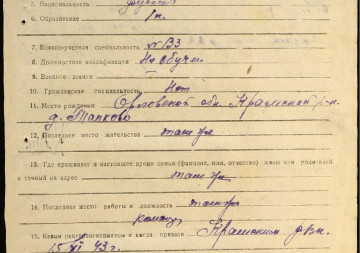 5. Национальность русский
6. Образование 1 кл.
7. Военно-учетная специальность № 133
8. Должностная квалификация Не обучен.
9. Воинское звание
10. Гражданская специальность Нет
11. Место рождения Орловской обл. Крамской р-н.
д. Тапково
12. Последнее место жительства там же
13. Где проживает в настоящее время семья (фамилия, имя, отчество) жены или родителей
и точный их адрес там же
14. Последнее место работы и должность
15. Каким райвоенкоматом и когда призван Крамским рвк.
15 VI 43 г.